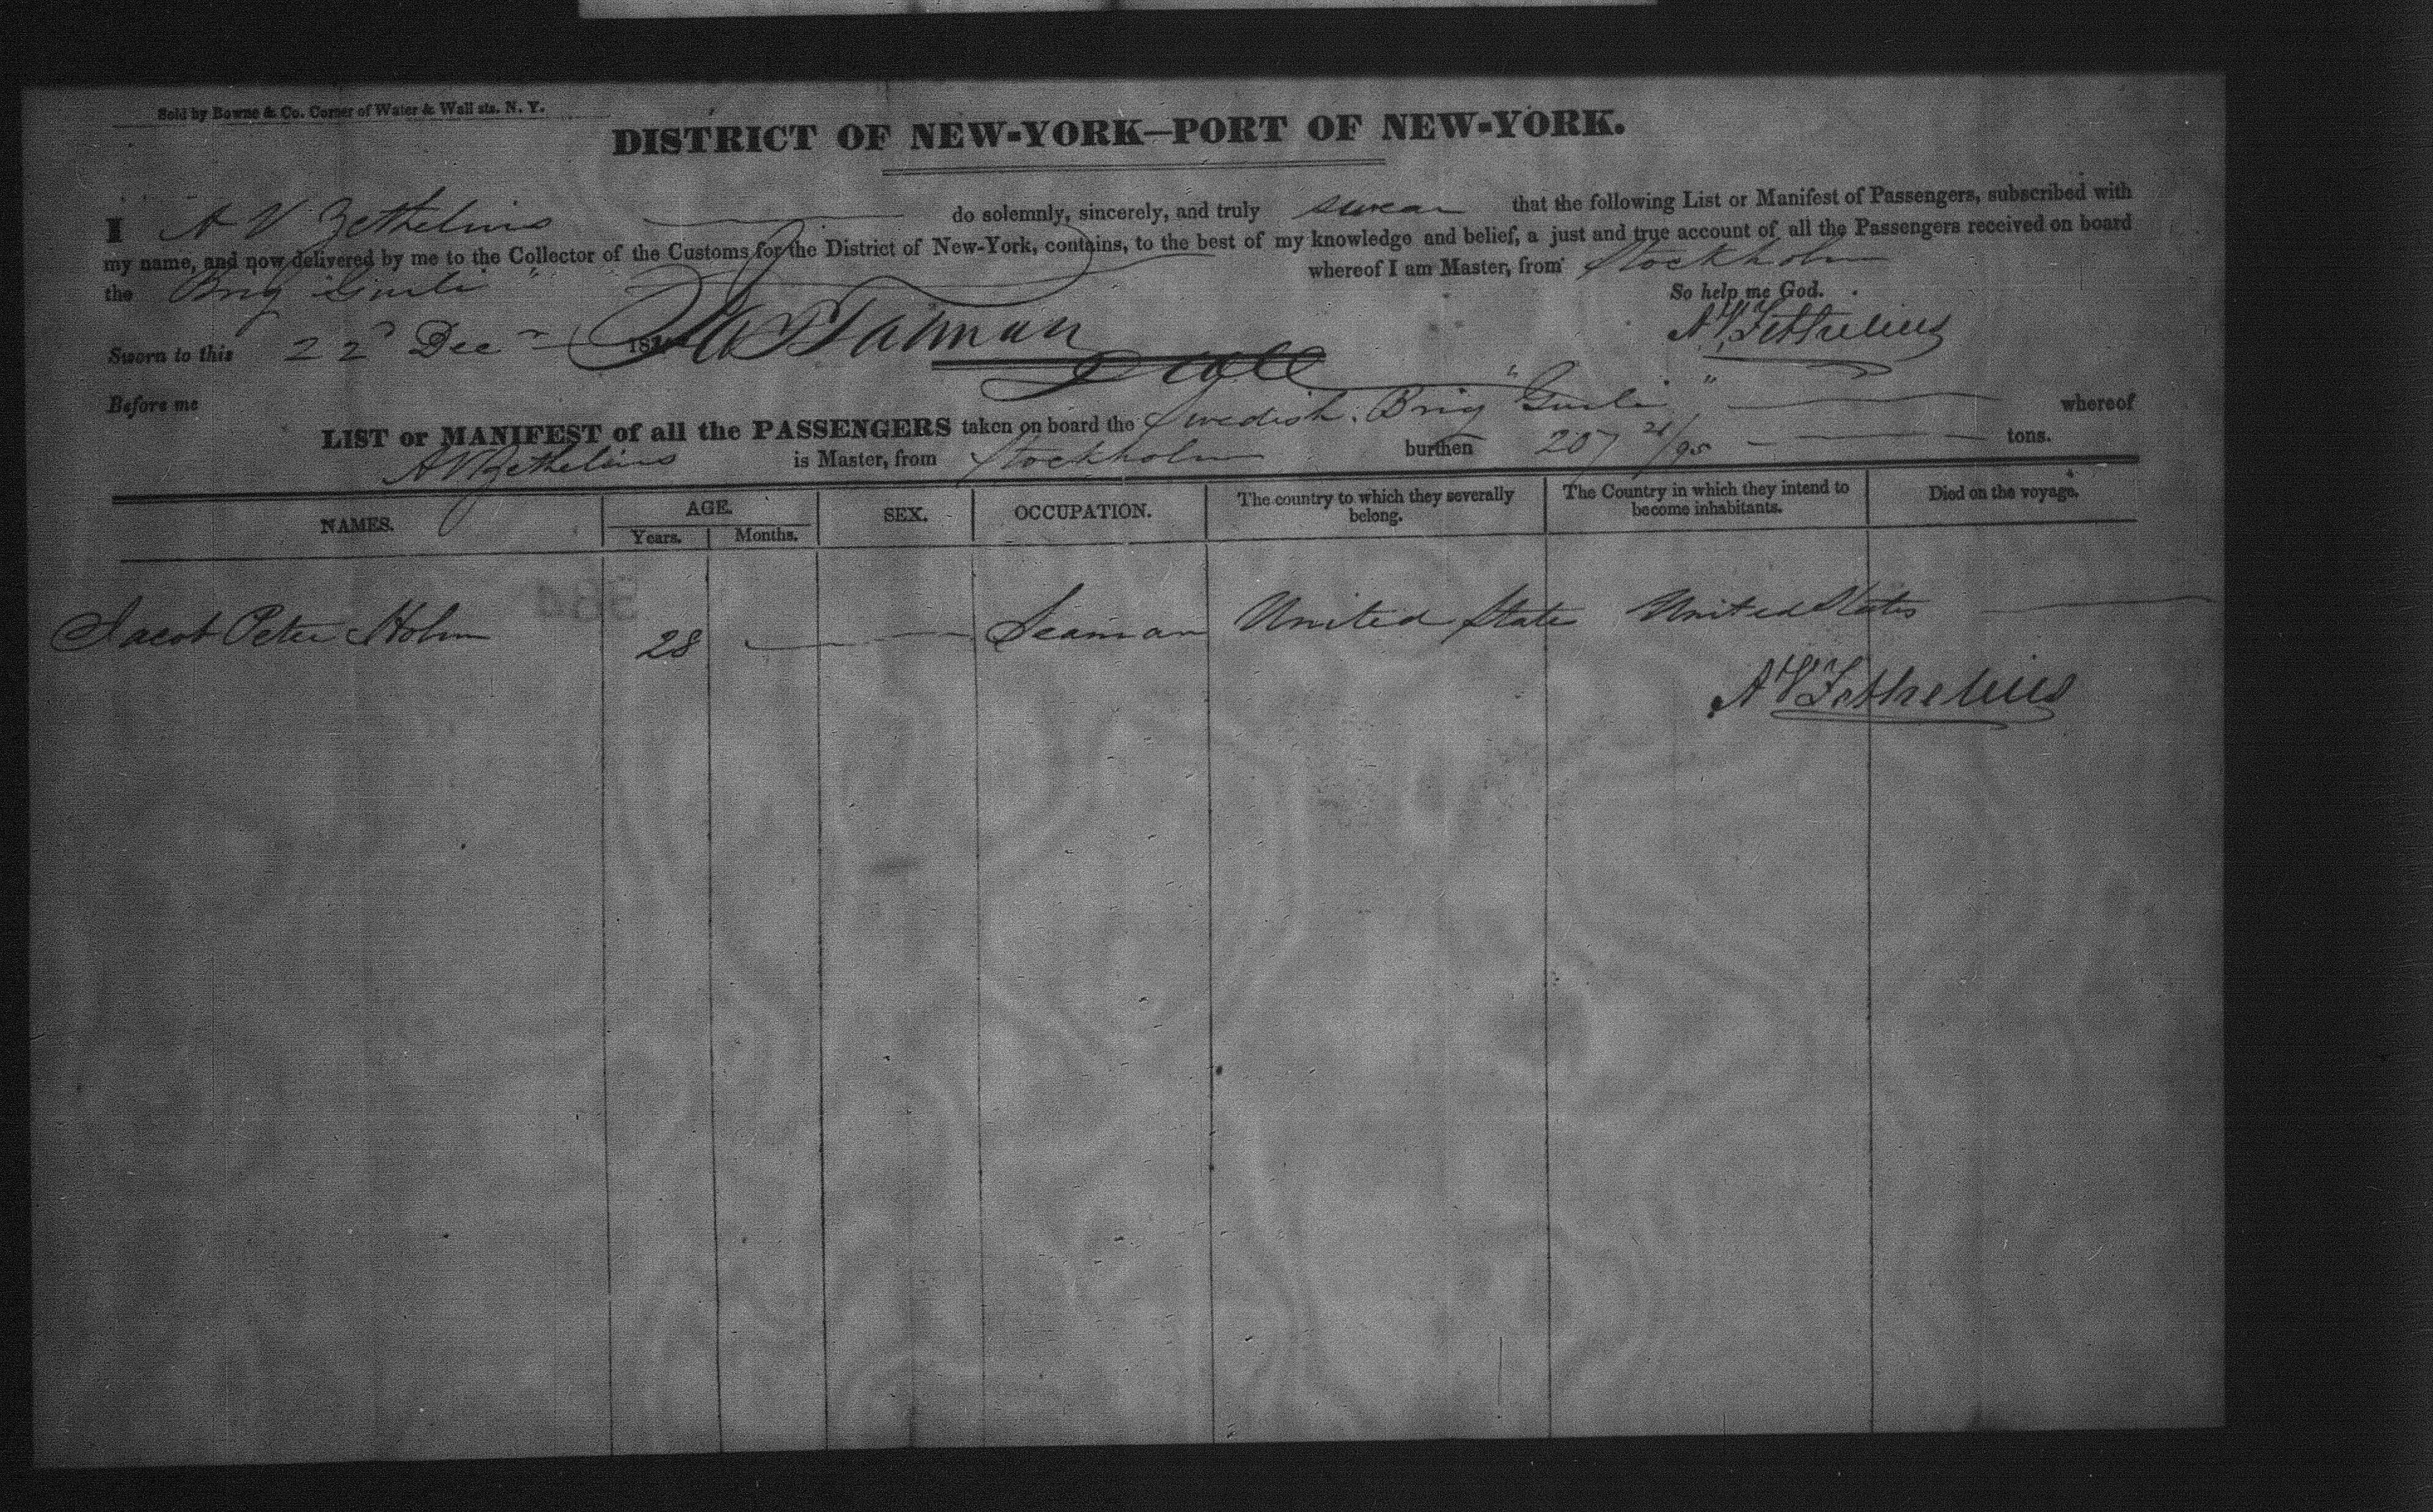 Sold by Bowne & Co. Corner of Water & Wall sts. N. Y.
DISTRICT OF NEW-YORK—PORT OF NEW-YORK.
I A V Zethelius do solemnly, sincerely, and truly swear that the following List or Manifest of Passengers, subscribed with
my name, and now delivered by me to the Collector of the Customs for the District of New-York, contains, to the best of my knowledge and belief, a just and true account of all the Passengers received on board
the Brig "Gurli" whereof I am Master, from Stockholm
So help me God.
Sworn to this 22d Dec 184 A V Zethelius
Before me
LIST or MANIFEST of all the PASSENGERS taken on board the Swedish Brig "Gurli" whereof
A V Zethelius is Master, from Stockholm burthen 207 21/95 tons.
NAMES. AGE. SEX. OCCUPATION. The country to which they severally belong. The Country in which they intend to become inhabitants. Died on the voyage.
Years. Months.
Jacob Peter Holm 28 Seaman United State United States
A V Zethelius